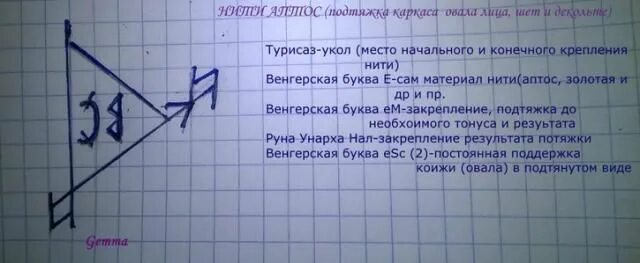 НИТИ АПТОС (подтяжка каркаса овала лица, шет и декольте)
Турисаз-укол (место начального и конечного крепления
нити)
Венгерская буква Е-сам материал нити(аптос, золотая и
др и пр.
Венгерская буква еМ-закрепление, подтяжка до
необхоимого тонуса и резуьтата
Руна Унарха Нал-закрепление результата потяжки
Венгерская буква eSc (2)-постоянная поддержка
коижи (овала) в подтянутом виде
Gemma